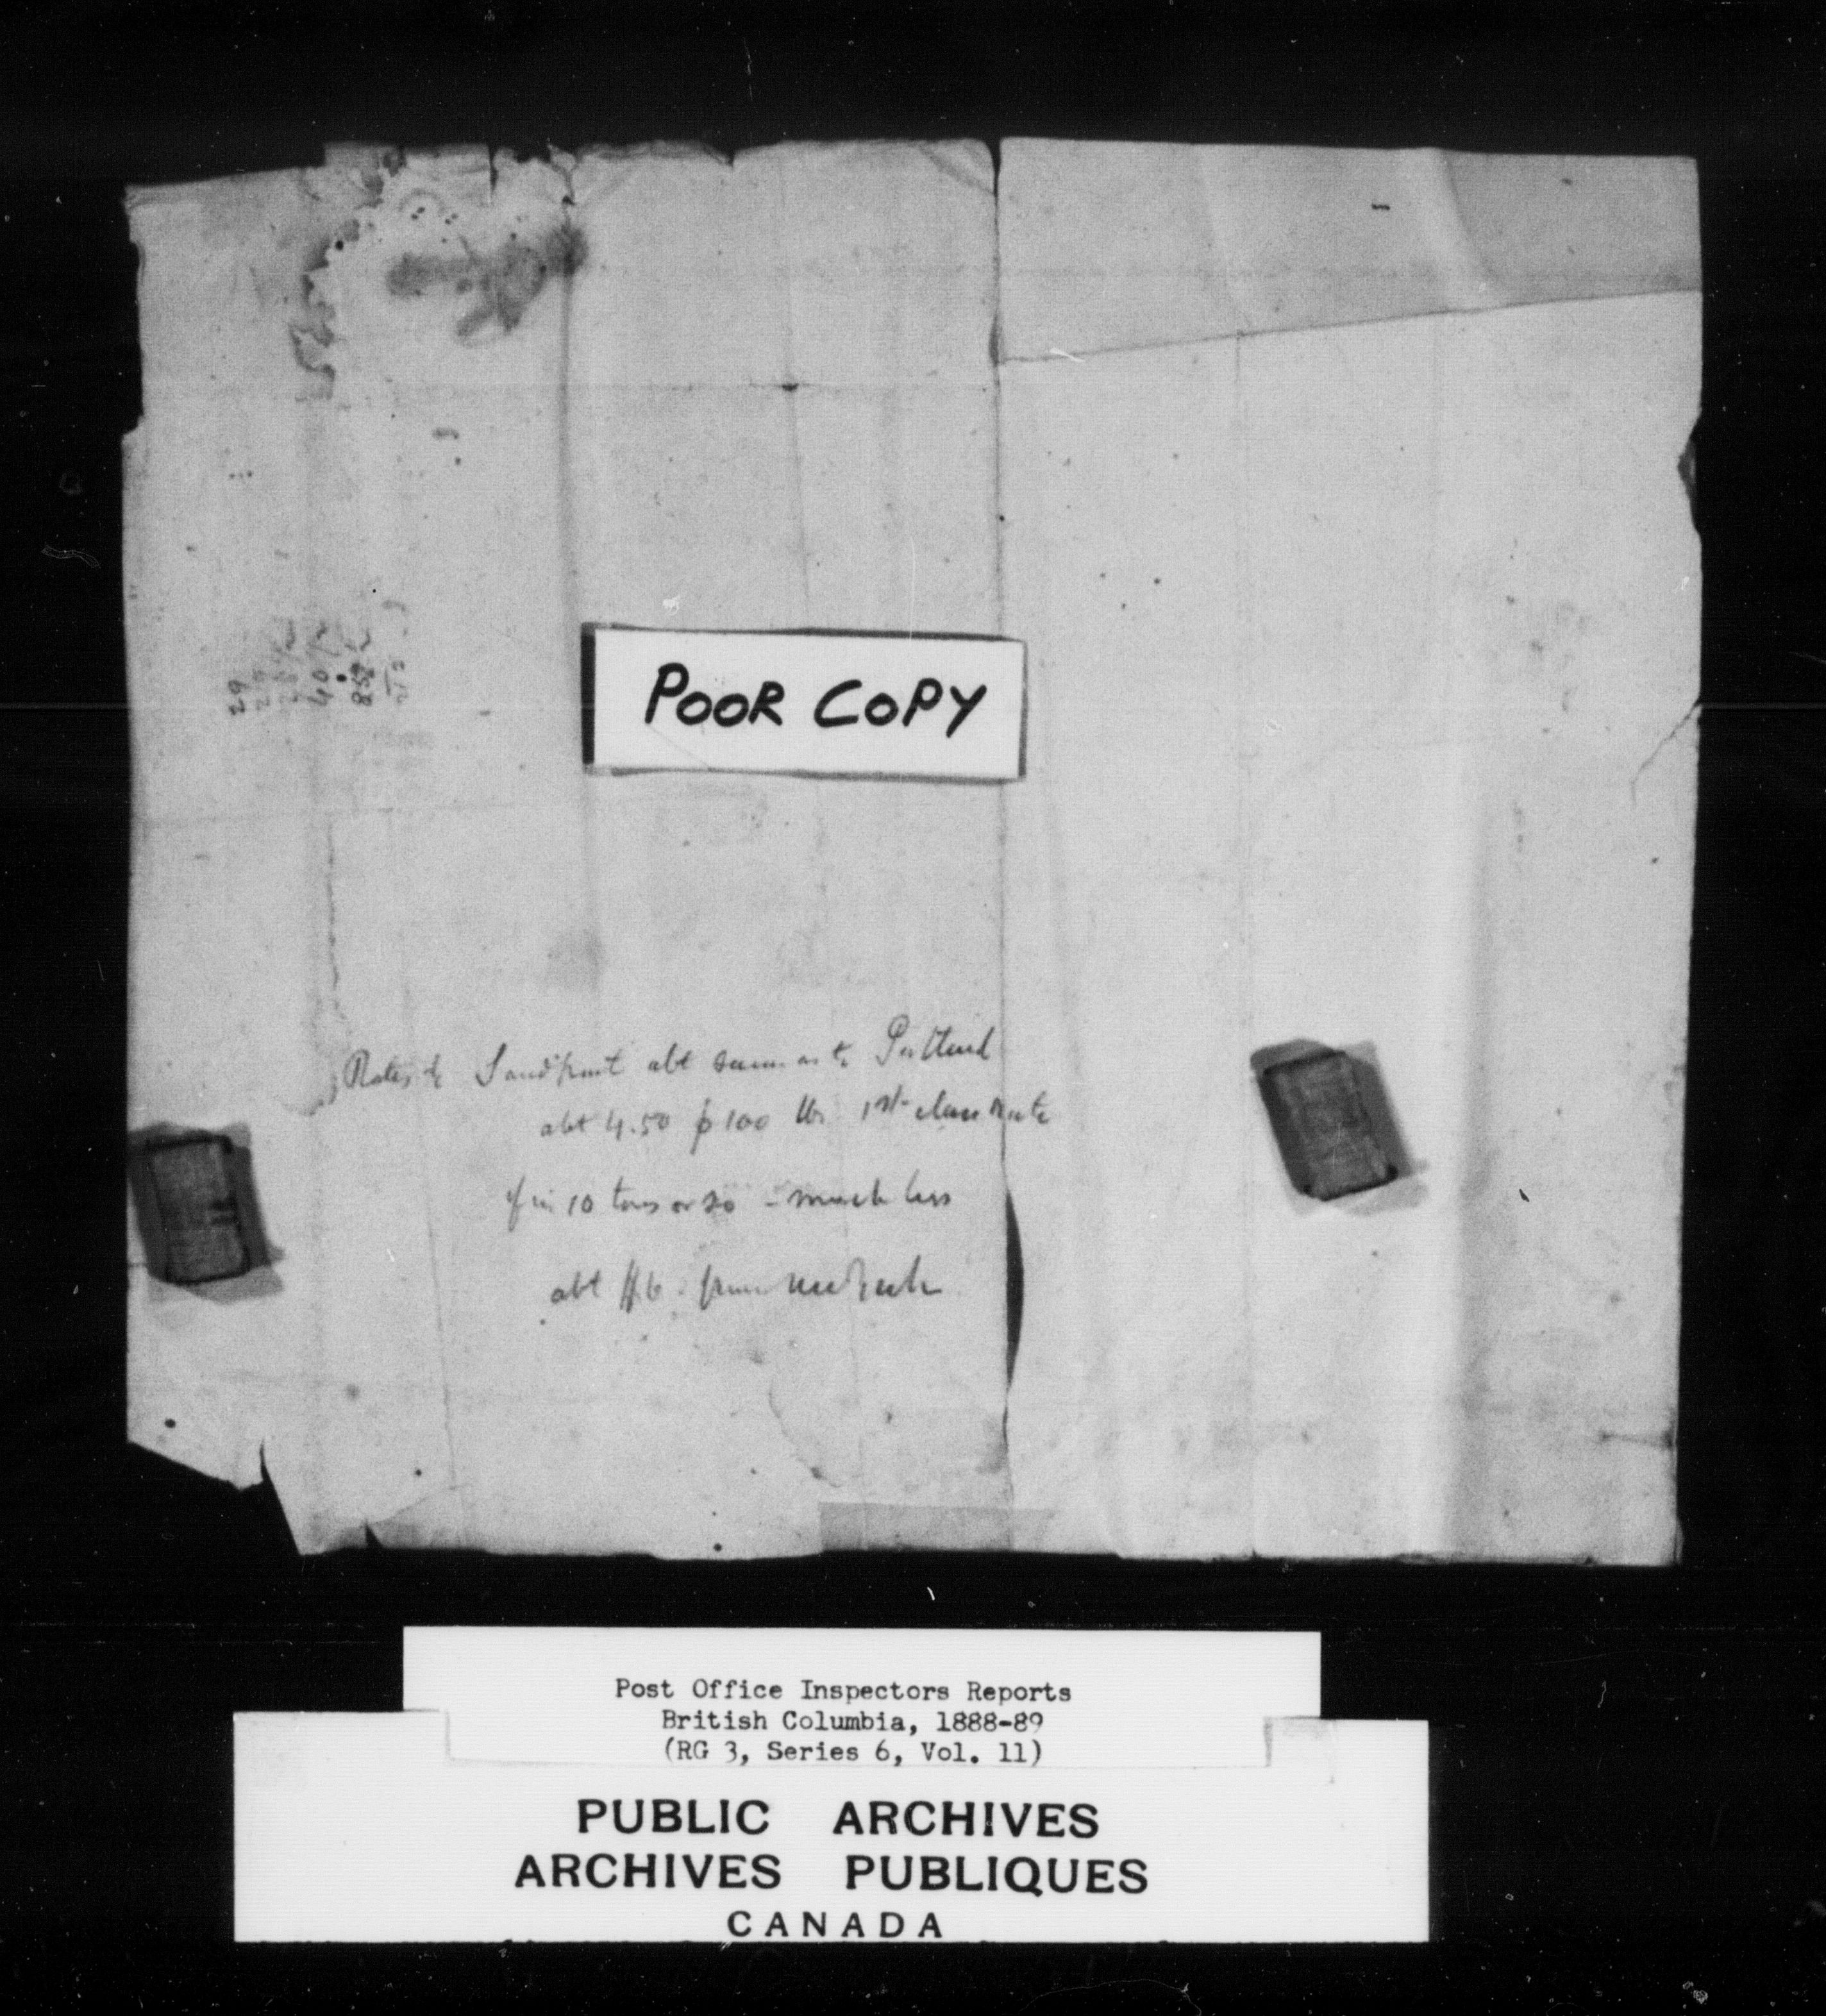 29
40
858
POOR COPY
Rates to Sandpoint abt same as to Portland
abt 4.50 p 100 lbs 1st class Rate
if in 10 tons or so - much less
abt
Post Office Inspectors Reports
British Columbia, 1888-89
(RG 3, Series 6, Vol. 11)
PUBLIC ARCHIVES
ARCHIVES PUBLIQUES
CANADA